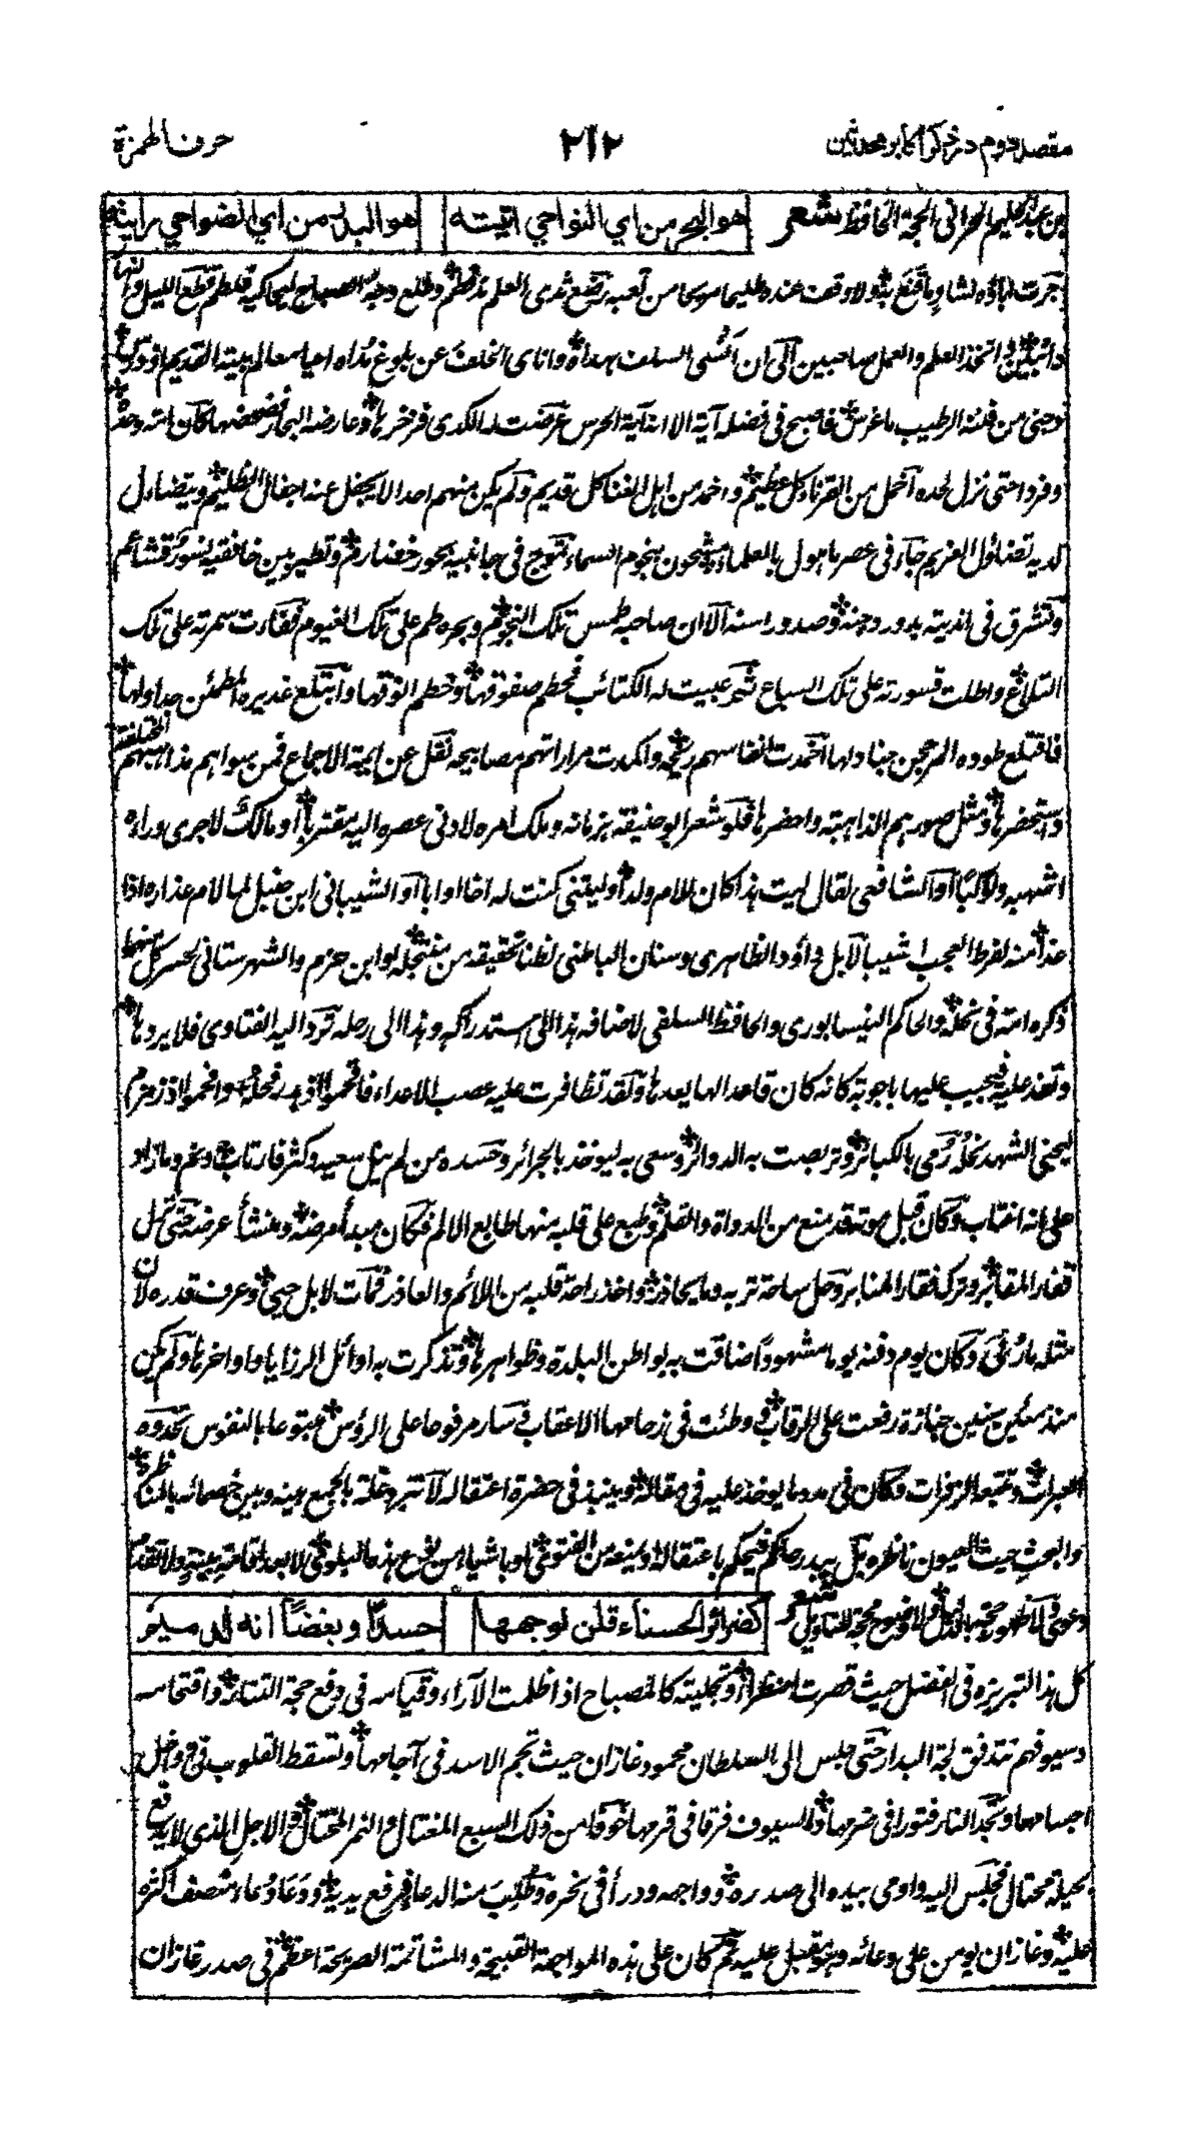 مقصد دوم در ذكر اكابر محدثين ٢١٢ حرف الهمزة
بن عبد الحليم الحراني الحجة الحافظ شعر هو البحر من اي النواحي اتيته هو البدر من اي الضواحي رايته
جرت آباؤه لشاو ما قنع به ولا وقف عنده طليحا مريحا من تعبه رضع ثدي العلم منذ فطم وطلع وجه الصباح ليحاكيه فلطم وقطع الليل والنهار
دائبين واتخذ العلم والعمل صاحبين الى ان انسى السلف بهداه وانأى الخلف عن بلوغ مداه احيا معالم بيته القديم اذ درس
وجنى من فننه الرطيب ما غرس فاصبح في فضله آية الا انه آية الحرس عرضت له الكدى فزحزحها وعارضه البحار فضحضحها كان امة وحده
وفردا حتى نزل لحده اخمل من القرناء كل عظيم واخمد من اهل الفنا كل قديم ولم يكن منهم احد الا يجفل عنه اجفال الظليم ويتضاءل
لديه تضاؤل الغريم جاء في عصر ماهول بالعلماء مشحون بنجوم السماء تموج في جانبيه بحور خضارم وتطير بين خافقيه نسور قشاعم
وتشرق في انديته بدور دجنة وصدور اسنة الا ان صباحه طمس تلك النجوم وبحره طم على تلك الغيوم ففاءت سمرته على تلك
التلاع واطلت قسورته على تلك السباع ثم عبيت له الكتائب فحطم صفوفها وخطم انوفها وابتلع غديره المطمئن جداولها
فاقتلع طوده المرجحن جنادلها اخمدت انفاسهم ريحه واكمدت شراراتهم مصابيحه نقل عن ايمة الاجماع فمن سواهم مذاهبهم المختلفة
واستحضرها ومثل صورهم الذاهبة واحضرها فلو شعر ابو حنيفة بزمانه وملك امره لادنى عصره اليه مقتربا او مالك لاجرى وراءه
اشهبه ولو كبا او الشافعي لقال ليت هذا كان للام ولدا وليتني كنت له اخا او ابا او الشيباني ابن حنبل لما لام عذاره اذا
غدا منه لفرط العجب اشيبا لا بل داؤد الظاهري وسنان الباطني لظنا تحقيقه من منتحله او ابن حزم والشهرستاني لحشر كل منهما
ذكره امة في نحله والحاكم النيسابوري والحافظ السلفي لاضافه هذا الى استدراكه وهذا الى رحله ترد اليه الفتاوى فلا يردها
وتفد عليه فيجيب عليها باجوبة كانه كان قاعدا لها يعدها ولقد تظافرت عليه عصب الاعداء فاقحموا اذ هدر فحله وافحموا اذ زمزم
ليجني الشهد نحله رمي بالكبائر وتربصت به الدوائر وسعى به ليوخذ بالجرائر وحسده من لم ينل سعيه وكثر فارتاب ونم وما زاد
على انه اغتاب وكان قبل موته قد منع من الدواة والقلم وطبع على قلبه منها طابع الالم فكان مبدأ مرضه ومنشأ عرضه حتى نزل
قفار المقابر وترك فقار المنابر وحل ساحة تربه وما يحاذر واخذ راحة قلبه من اللائم والعاذر فمات لا بل حيي وعرف قدره لان
مثله ما رئي وكان يوم دفنه يوما مشهودا ضاقت به بواطن البلدة وظواهرها وتذكرت به اوائل الرزايا واواخرها ولم يكن
منذ مئين سنين جنازة رفعت على الرقاب ووطئت في زحامها الاعقاب فسار مرفوعا على الرؤس متبوعا بالنفوس تحدوه
العبرات وتتبعه الزفرات وكان في مدد ما يوخذ عليه في مقاله وينبذ في حفرة اعتقاله لا تبرد غلة بالجمع بينه وبين خصمائه بالمناظرة
والبحث حيث العيون ناظرة بل يبدر حاكم فيحكم باعتقاله ويمنعه من الفتوى او باشياء من نوع هذه البلوى لا بعد اقامة بينة ولا تقدم
دعوى شعر كضرائر الحسناء قلن لوجهها حسدًا وبغضًا انه لدميم
كل هذا لتبريزه في الفضل حيث قصرت النظراء وتجليته كالمصباح اذ اظلمت الآراء وقيامه في دفع حجة التتار واقتحامه
وسيوفهم تتدفق لجة البدار حتى جلس الى السلطان محمود غازان حيث تجم الاسد في آجامها وتسقط القلوب في دواخل
اجسامها وتجد النار فتورا في ضرمها والسيوف فرقا في قرمها خوفا من ذلك السبع المغتال والنمرود المختال والاجل الذي لا يدفع
بحيلة محتال فجلس اليه واومى بيده الى صدره وواجهه ودرأ في نحره وطلب منه الدعاء فرفع يديه ودعا دعاء منصف اكثره
عليه وغازان يومن على دعائه وهو مقبل عليه ثم كان على هذه المواجهة القبيحة والمشاتمة الصريحة اعظم في صدر غازان